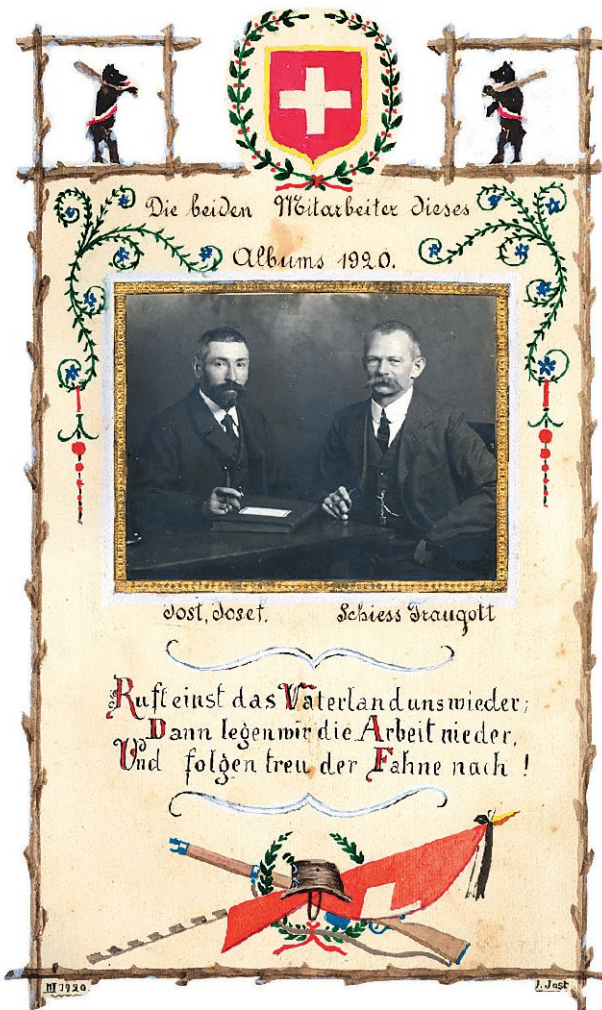 Die beiden Mitarbeiter dieses
Albums 1920.
Jost, Josef. Schiess Traugott
Ruft einst das Vaterland uns wieder;
Dann legen wir die Arbeit nieder,
Und folgen treu der Fahne nach!
III 1920. J. Jost